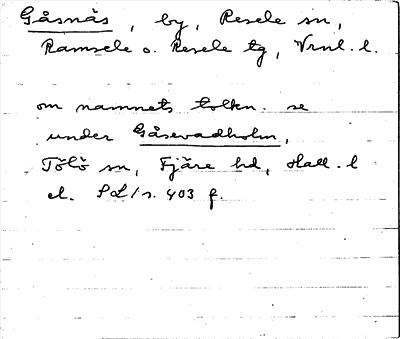 Gåsnäs, by, Resele sn,
Ramsele o. Resele tg, Vrnl. l.
om namnets tolkn. se
under Gåsevadholm,
Tölö sn, Fjäre hd, Hall. l
el. SL/s. 403 f.